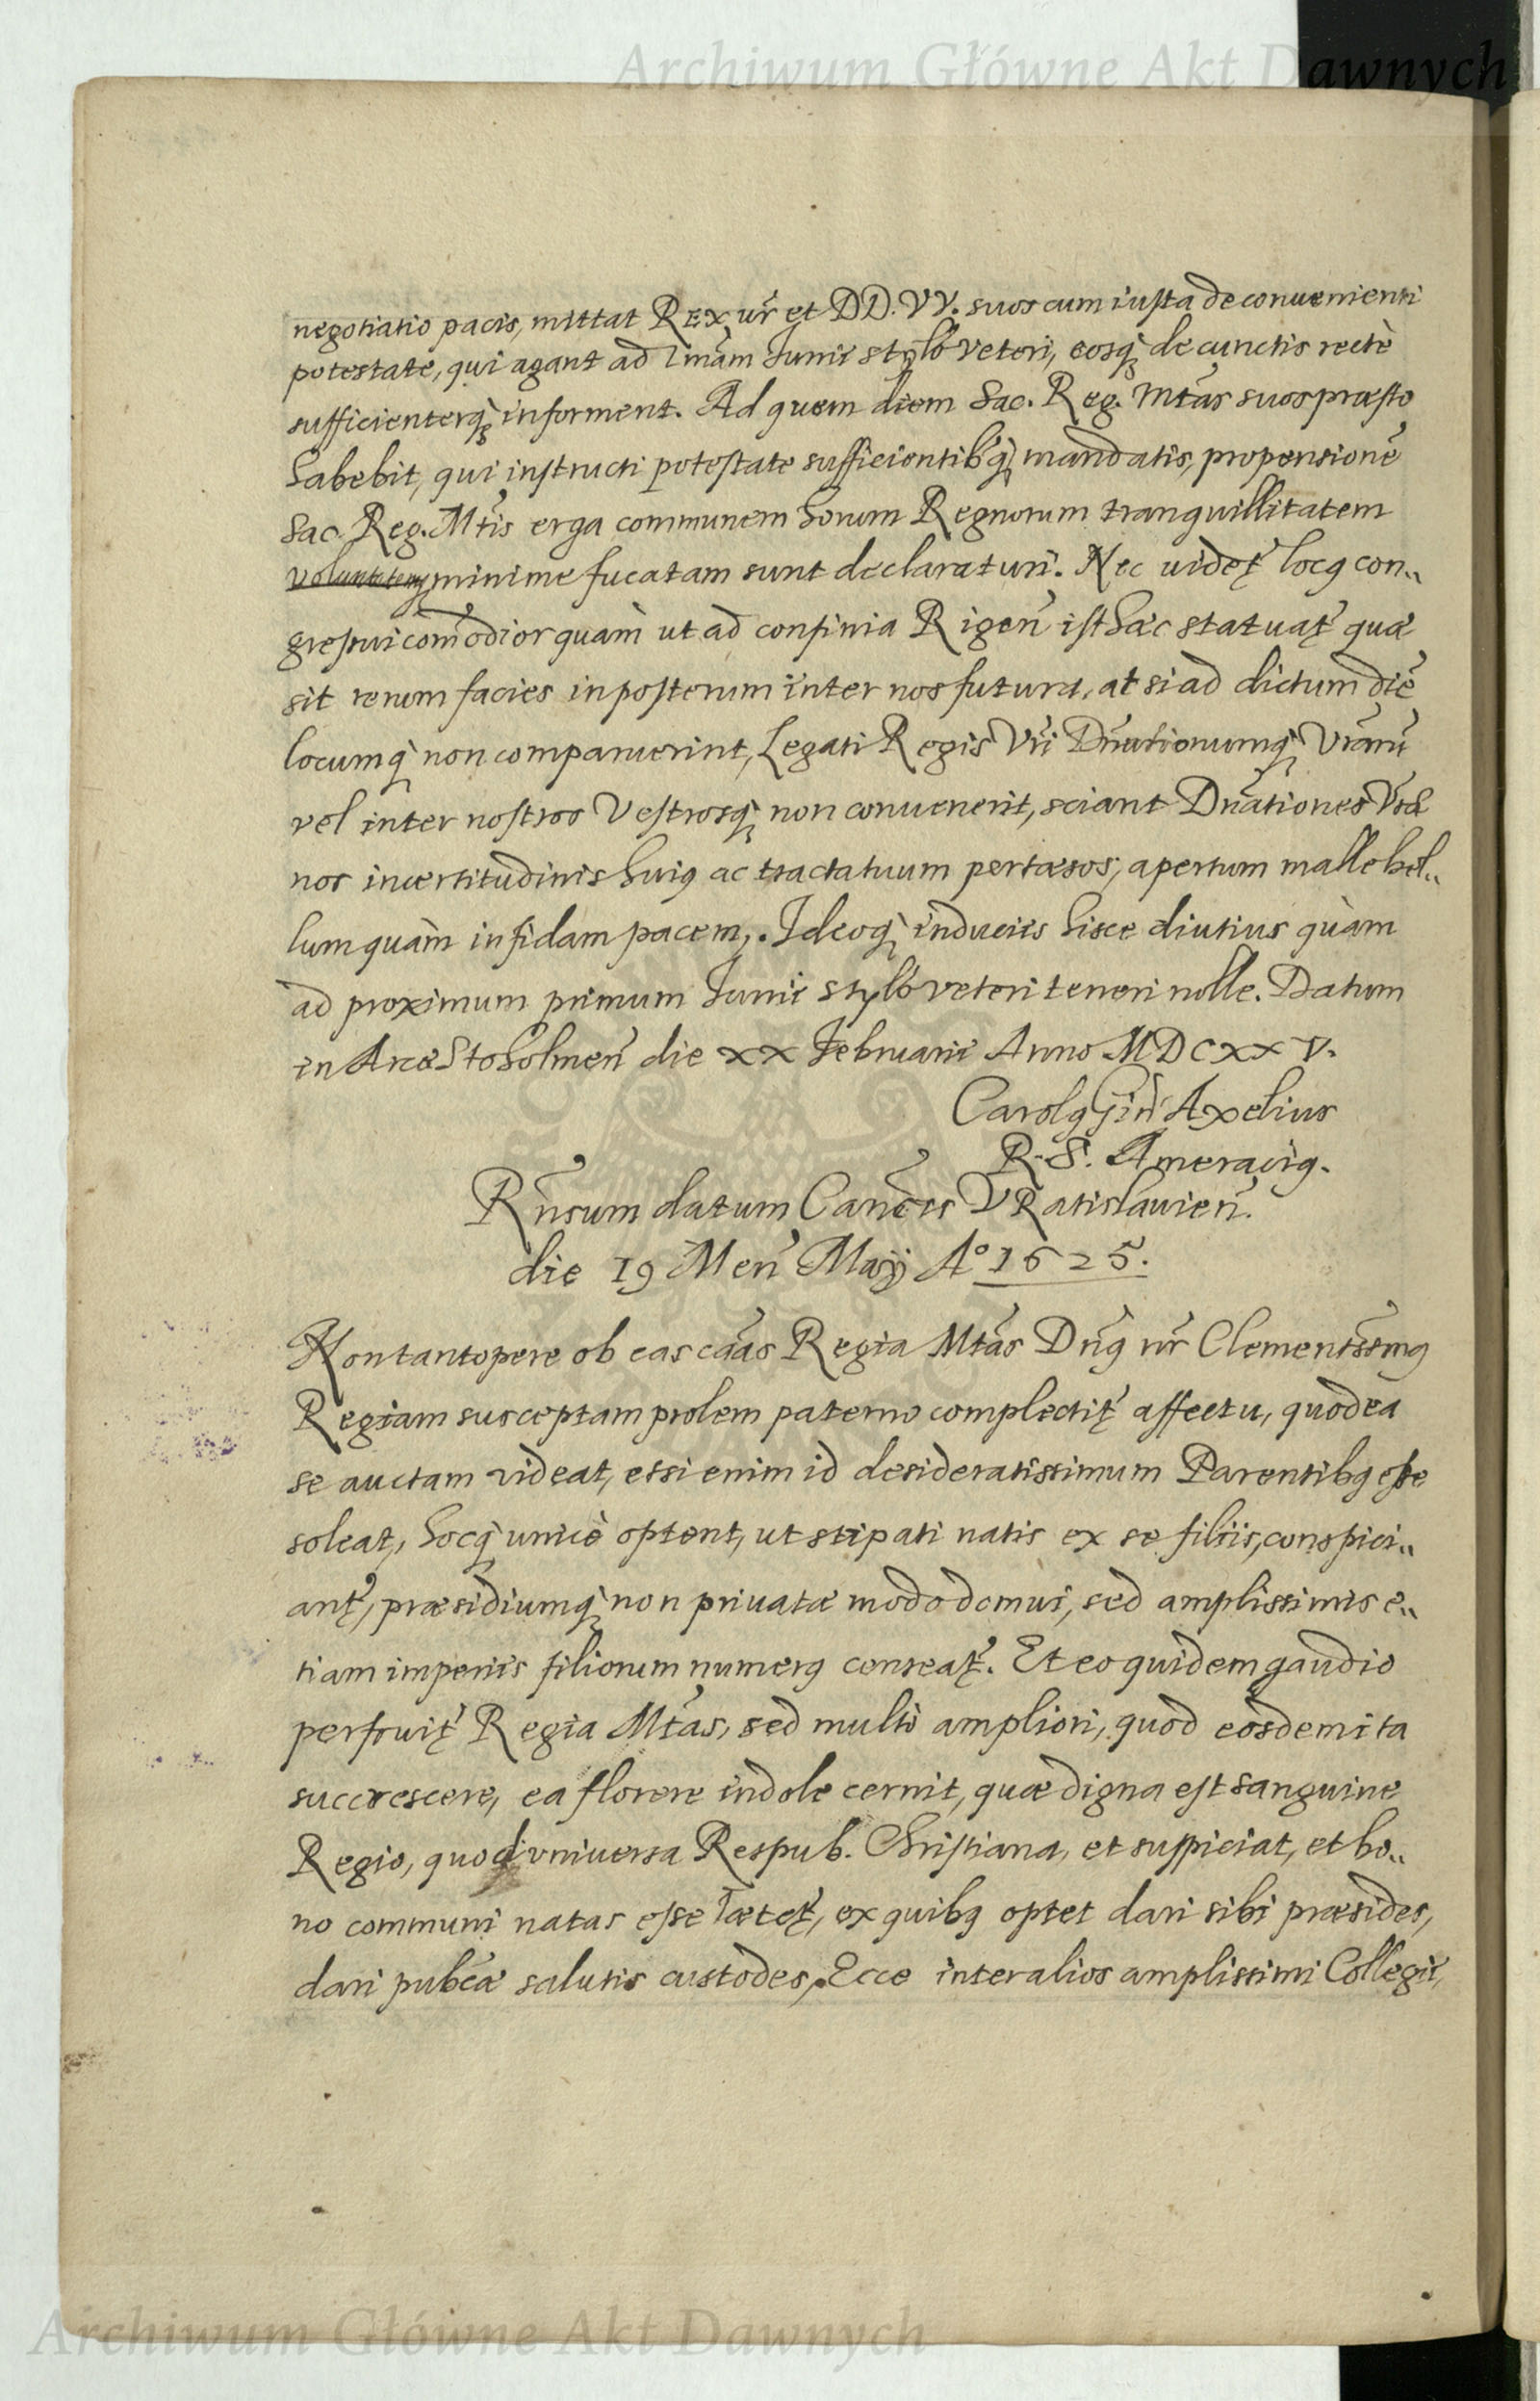 Archiwum Główne Akt Dawnych
negotiatio pacis, mittat Rex vr̃ et DD. VV. suos cum iusta de conuenienti
potestate, qui agant ad 1mam Junii stylo veteri, eosq; de cunctis rectè
sufficienterq; informent. Ad quem diem Sac. Reg. Mtas suos præsto
habebit, qui instructi potestate sufficientibq; mandatis, propensionẽ
Sac. Reg. Mtis erga communem horum Regnorum tranquillitatem
voluntatemq; minime fucatam sunt declaraturi. Nec videtr locq con„
gressui com̃odior quàm ut ad confinia Rigeñ isthæc statuatr quæ
sit rerum facies in posterum inter nos futura, at si ad dictum diẽ
locumq; non comparuerint, Legati Regis Vri Dnationumq; Vrarũ
vel inter nostros Vestrosq; non conuenerit, sciant Dnationes Vræ
nos incertitudinis huiq ac tractatuum pertæsos, apertum malle bel„
lum quàm infidam pacem,. Ideoq; induciis hisce diutius quàm
ad proximum primum Junii stylo veteri teneri nolle. Datum
in Arce Stoholmeñ die xx Februarii Anno MDCXXV.
Carolq Axelius
R. S.
Rñsum datum Cancris VRatislauieñ.
die 19 Meñ Maÿ Aº 1625.
Non tantopere ob eas caãs Regia Mtas Dñq nr̃ Clementissimq
Regiam susceptam prolem paterno complectitr affectu, quod ea
se auctam videat, etsi enim id desideratissimum Parentibq esse
soleat, hocq; unicè optent, ut stipati natis ex se filiis, conspici„
antr, præsidiumq; non priuatæ modo domui, sed amplissimis e„
tiam imperiis filiorum numerq censeatr. Et eo quidem gaudio
perfruitr Regia Mtas, sed multò ampliori, quod eosdem ita
succrescere, ea florere indole cernit, quæ digna est sanguine
Regio, quod vniuersa Respub. Christiana, et suspiciat, et bo„
no communi natas esse lætetr, ex quibq optet dari sibi præsides,
dari pubcæ salutis custodes,. Ecce inter alios amplissimi Collegii,
Archiwum Główne Akt Dawnych